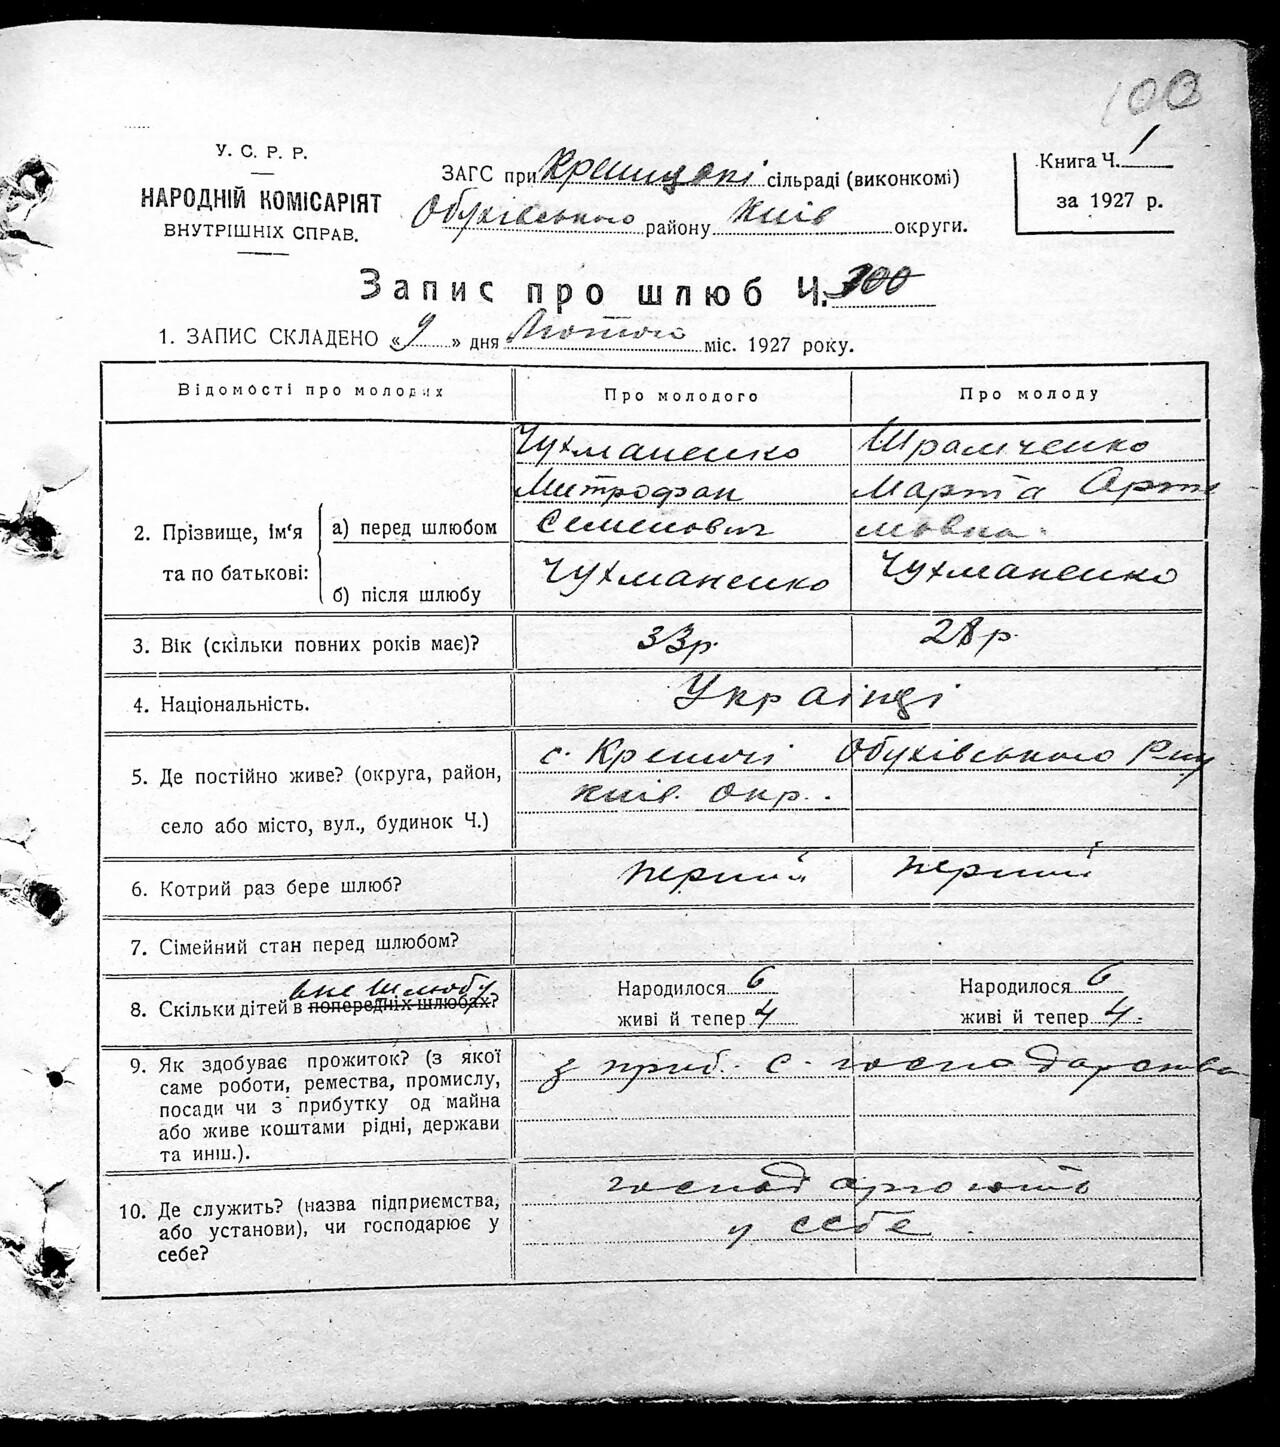 100
У. С. Р. Р.
НАРОДНІЙ КОМІСАРІЯТ
ВНУТРІШНІХ СПРАВ.
ЗАГС при сільраді (виконкомі)
Обухівського району Київ округи.
Книга Ч. 1
за 1927 р.
Запис про шлюб Ч. 300
1. ЗАПИС СКЛАДЕНО « 9 » дня Лютого міс. 1927 року.
Відомості про молодих
Про молодого
Про молоду
2. Прізвище, ім‘я
та по батькові:
а) перед шлюбом
Чухманенко
Митрофан
Семенович
Шрамченко
Марта Арте
мовна.
б) після шлюбу
Чухманенко
Чухманенко
3. Вік (скільки повних років має)?
33р.
28р.
4. Національність.
Украінці
5. Де постійно живе? (округа, район,
село або місто, вул., будинок Ч.)
с. Креничі Обухівського Р-ну
Київ. окр.
6. Котрий раз бере шлюб?
перший
перший
7. Сімейний стан перед шлюбом?
вне шлюбу
8. Скільки дітей в попередніх шлюбах?
Народилося 6
живі й тепер 4
Народилося 6
живі й тепер 4.
9. Як здобуває прожиток? (з якої
саме роботи, ремества, промислу,
посади чи з прибутку од майна
або живе коштами рідні, держави
та инш.).
з приб. с. господарства
10. Де служить? (назва підприємства,
або установи), чи господарює у
себе?
господарюють
у себе.